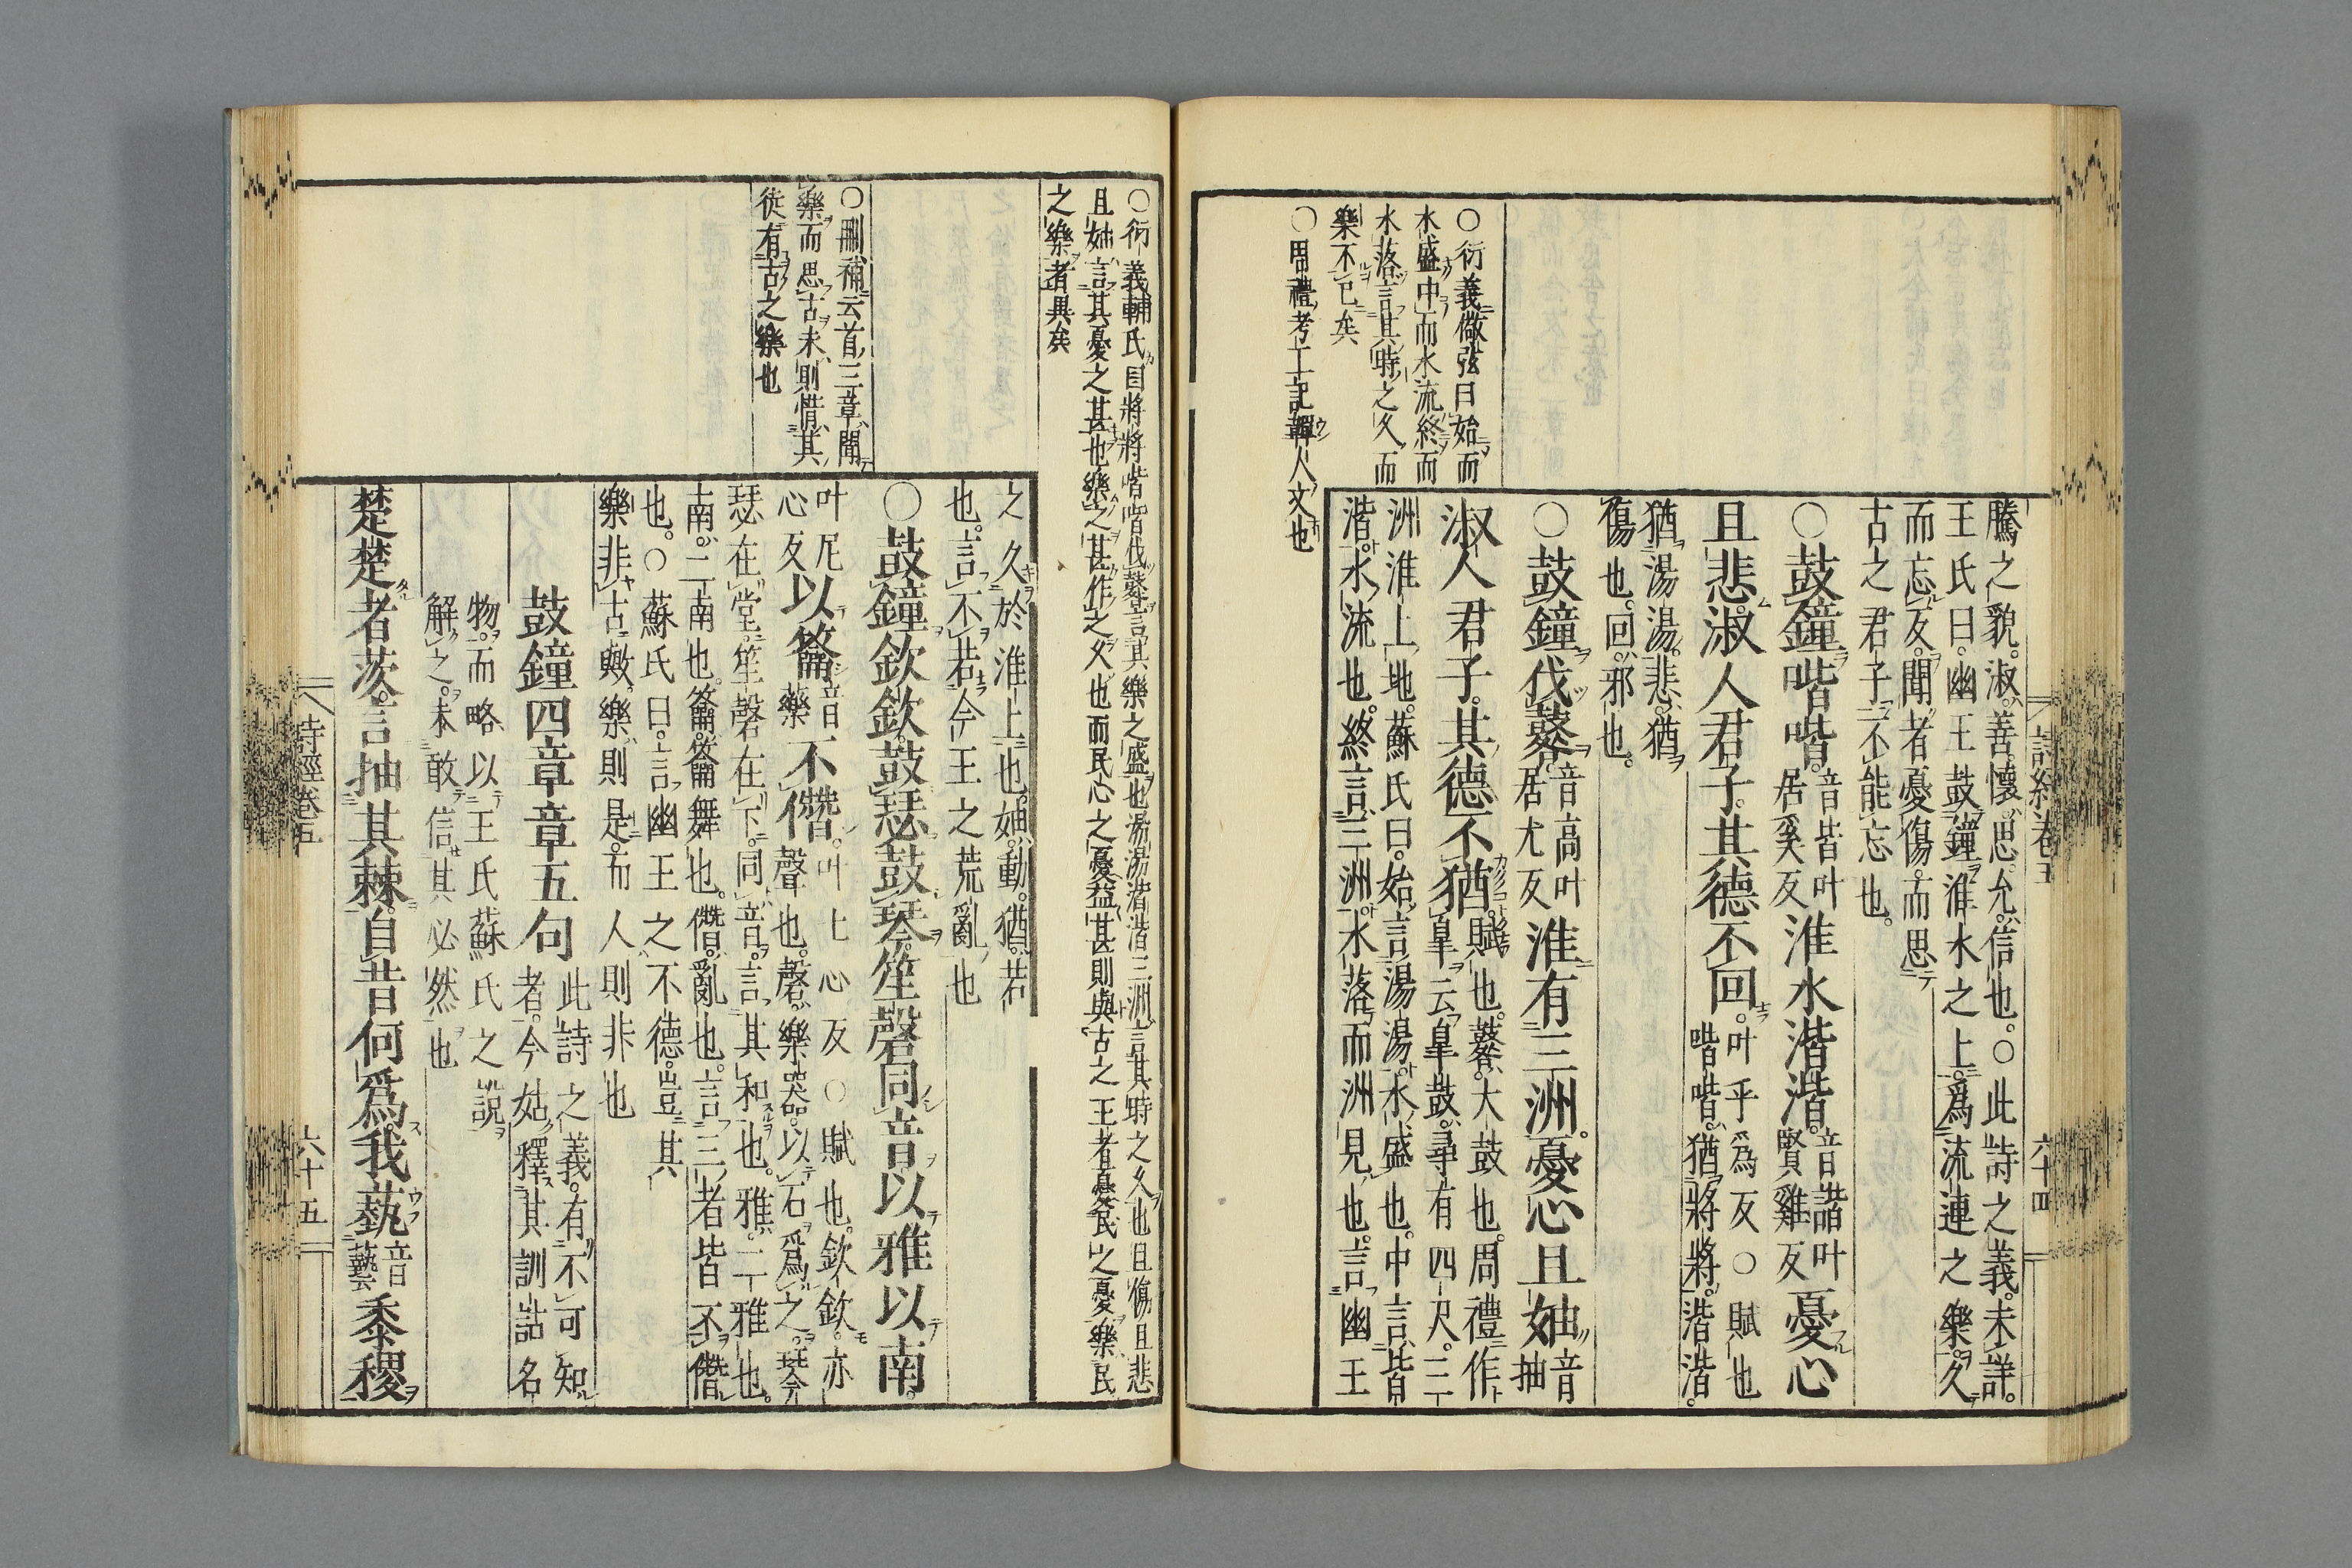 騰之貌。淑。善。懷。思。允。信也。○此詩之義。未詳。
王氏曰。幽王鼓鐘淮水之上。爲流連之樂。久
而忘反。聞者憂傷。而思
古之君子。不能忘也。
○鼓鐘喈喈。音皆叶居奚反淮水湝湝。音諧叶賢雞反憂心
且悲。淑人君子。其德不回。叶乎爲反○賦也喈喈。猶將將。湝湝。
猶湯湯。悲。猶
傷也。回。邪也。
○鼓鐘伐鼛。音高叶居尤反淮有三洲。憂心且妯。音抽
淑人君子。其德不猶。賦也。鼛。大鼓也。周禮作皐。云皐鼓。尋有四尺。三
洲淮上地。蘇氏曰。始言湯湯。水盛也。中言
湝湝。水流也。終言三洲。水落而洲見也。言幽王
○衍義倣弦曰始而
水盛中而水流終而
水落言其時之久而
樂不已矣
○周禮考工記韗人文也
○衍義輔氏曰將將喈喈伐鼛言其樂之盛也湯湯湝湝三洲言其時之久也且傷且悲
且妯言其憂之甚也樂之甚作之久也而民心之憂益甚則與古之王者憂民之憂樂民
之樂者異矣
○刪補云首三章聞
樂而思古未則惜其
徒有古之樂也
之久於淮上也。妯。動。猶。若
也。言不若今王之荒亂也
○鼓鐘欽欽。鼓瑟鼓琴。笙磬同音。以雅以南。
叶尼心反以籥音藥不僭。叶七心反○賦也。欽欽。亦聲也。磬。樂器。以石爲之。琴
瑟在堂。笙磬在下。同音。言其和也。雅。二雅也。
南。二南也。籥。籥舞也。僭。亂也。言三者皆不僭
也。○蘇氏曰。言幽王之不德。豈其
樂非古歟。樂則是。而人則非也
鼓鐘四章章五句此詩之義。有不可知者。今姑釋其訓詁名
物。而略以王氏蘇氏之說
解之。未敢信其必然也
楚楚者茨。言抽其棘。自昔何爲。我蓺音藝黍稷
詩經卷五
六十五
詩經卷五
六十四